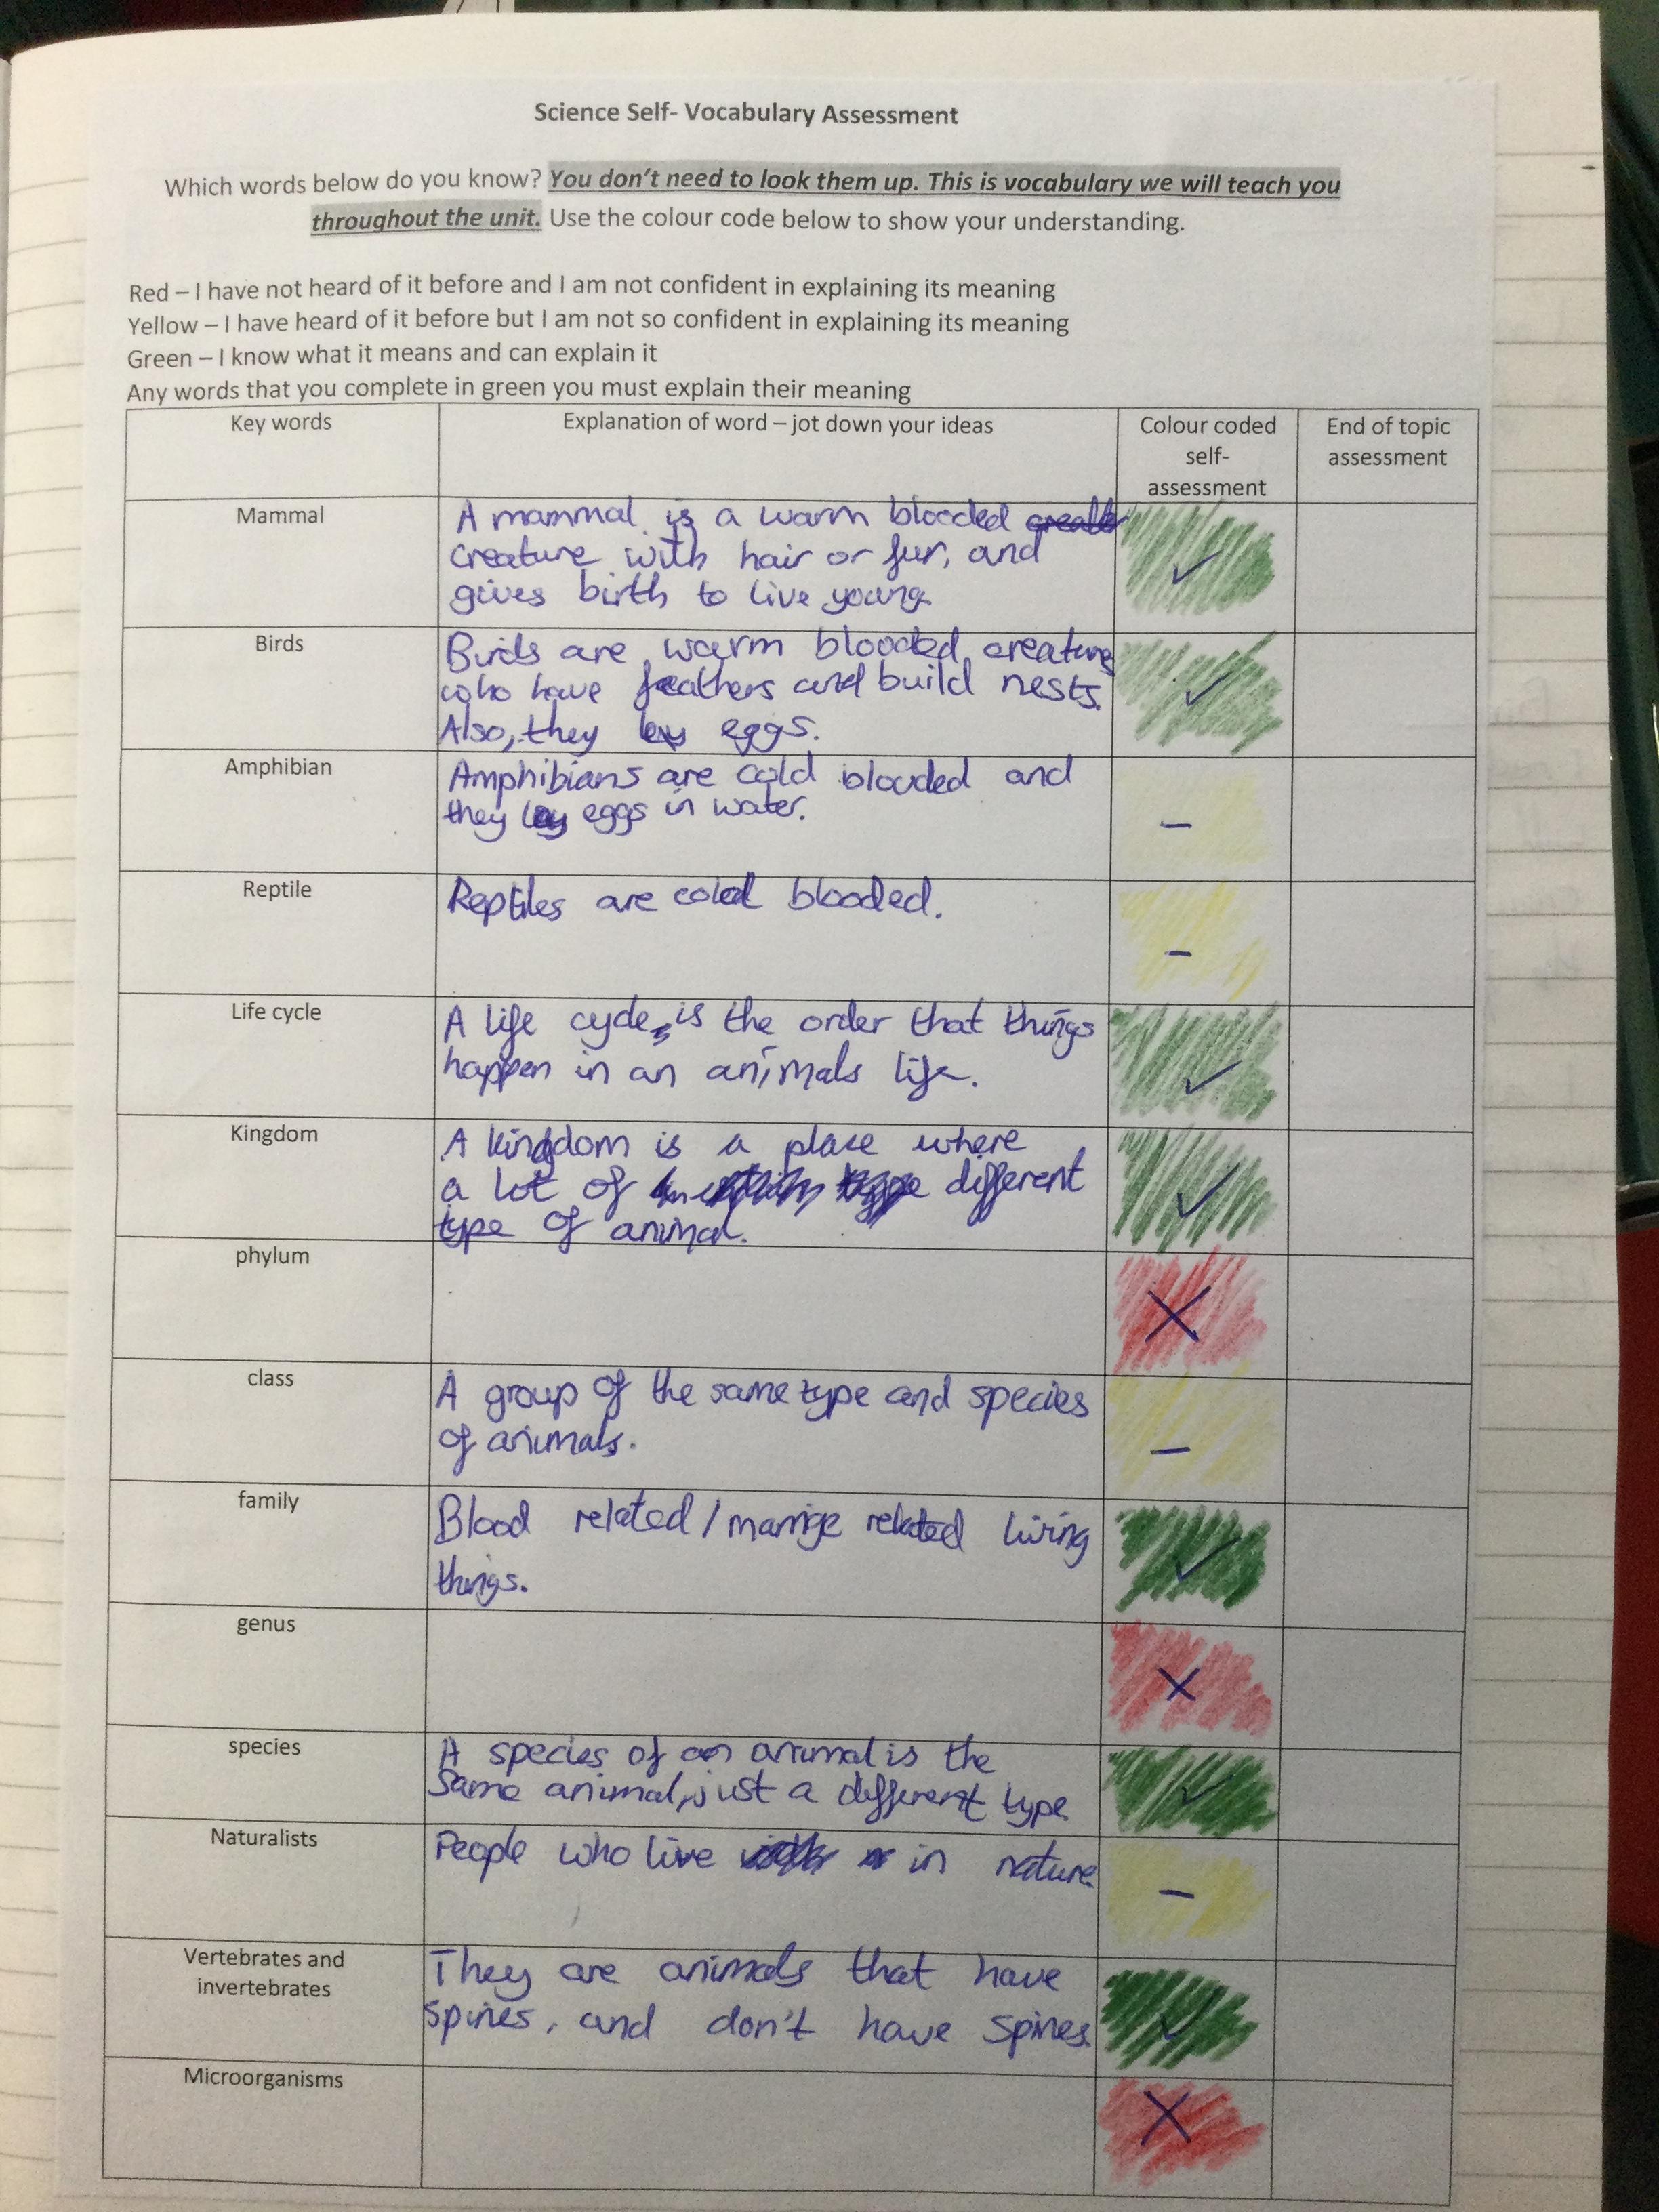 Science Self- Vocabulary Assessment
Which words below do you know? You don't need to look them up. This is vocabulary we will teach you
throughout the unit. Use the colour code below to show your understanding.
Red – I have not heard of it before and I am not confident in explaining its meaning
Yellow – I have heard of it before but I am not so confident in explaining its meaning
Green – I know what it means and can explain it
Any words that you complete in green you must explain their meaning
Key words
Explanation of word – jot down your ideas
Colour coded
self-
assessment
End of topic
assessment
Mammal
A mammal is a warm blooded
creature with hair or fur, and
gives birth to live young.
Birds
Birds are warm blooded creatures
who have feathers and build nests.
Also, they lay eggs.
Amphibian
Amphibians are cold blooded and
they lay eggs in water.
Reptile
Reptiles are cold blooded.
Life cycle
A life cycle is the order that things
happen in an animals life.
Kingdom
A kingdom is a place where
a lot of different
type of animal.
phylum
class
A group of the same type and species
of animals.
family
Blood related / marrige related living
things.
genus
species
A species of an animal is the
same animal, just a different type.
Naturalists
People who live in nature.
Vertebrates and
invertebrates
They are animals that have
spines, and don't have spines.
Microorganisms